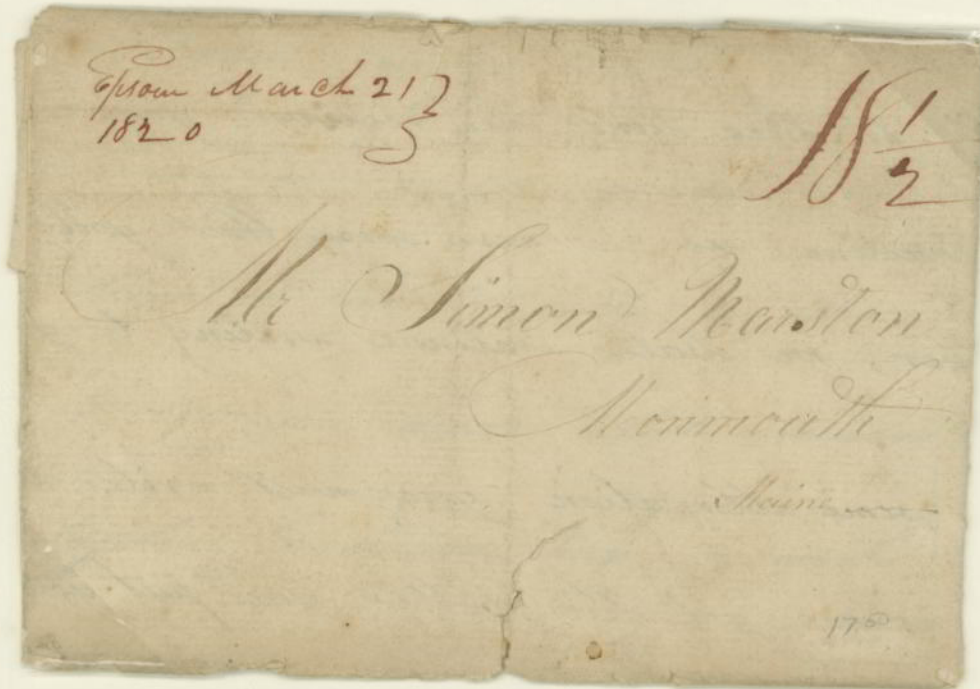 Epsom March 21
1820
18 1/2
Mr Simon Marston
Monmouth
Maine
17.50